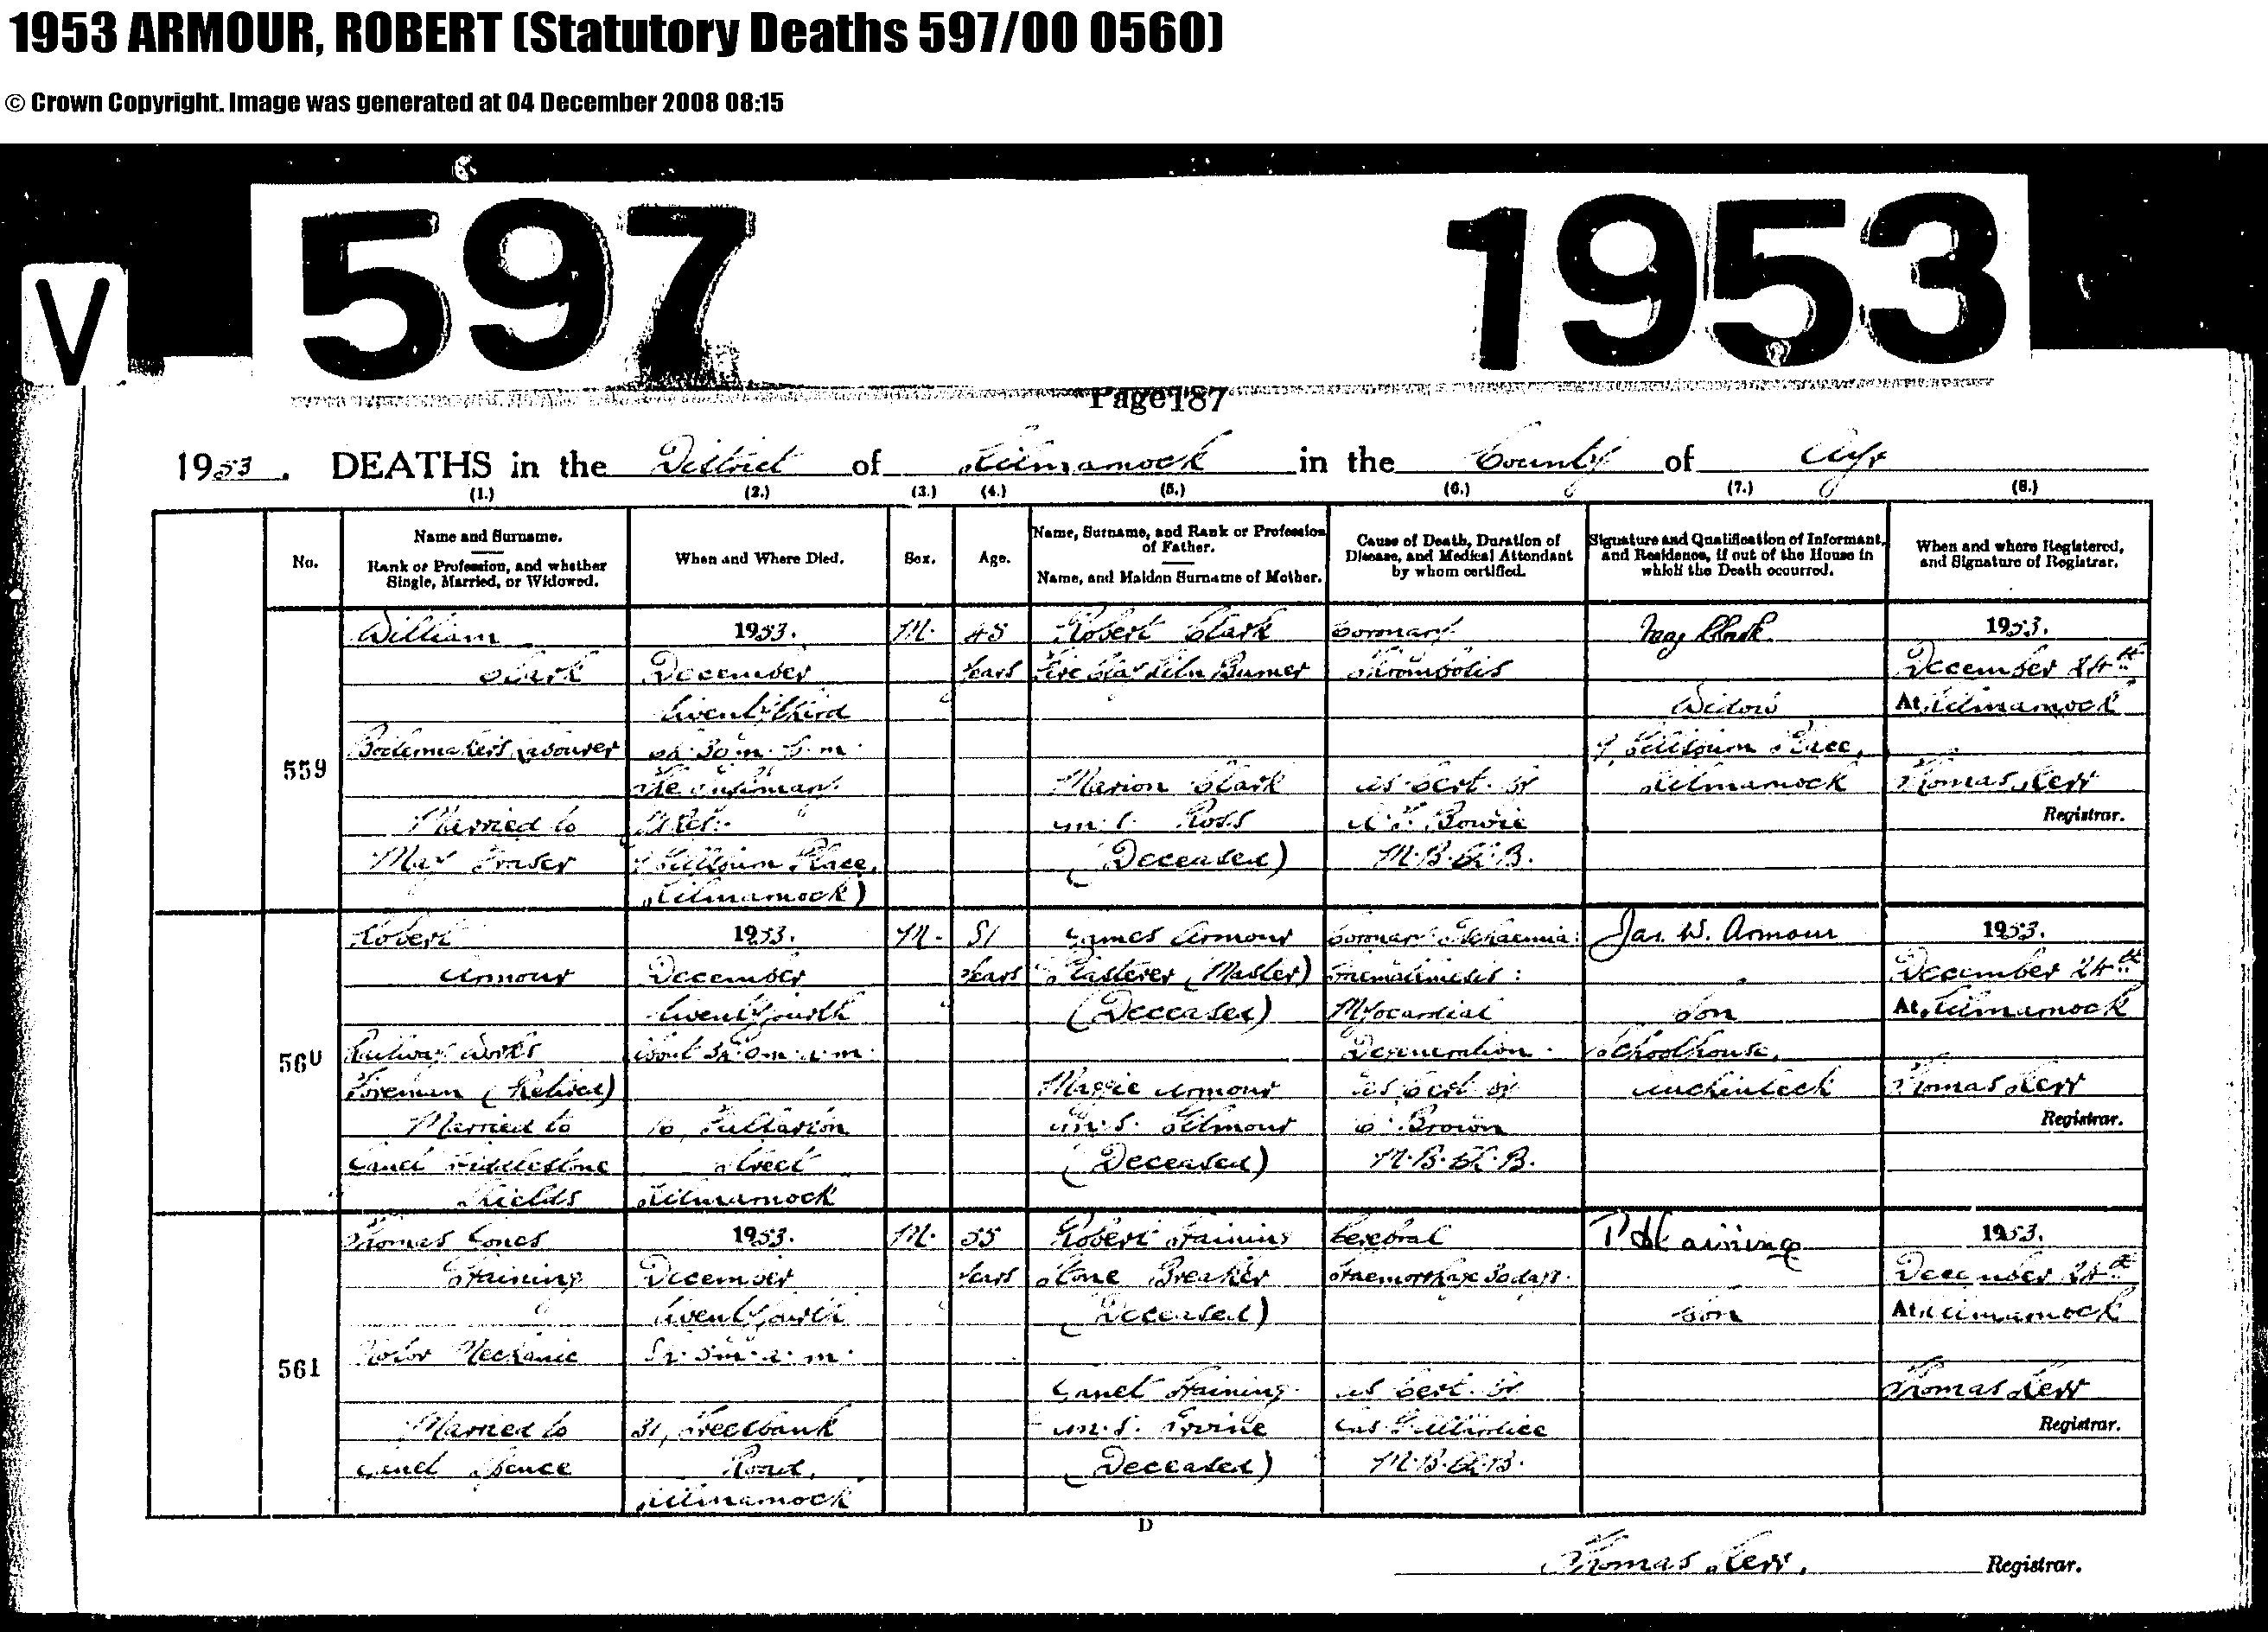 1953 ARMOUR, ROBERT (Statutory Deaths 597/00 0560)
© Crown Copyright. Image was generated at 04 December 2008 08:15
597 1953
V
Page 187
1953. DEATHS in the District of Kilmarnock in the County of Ayr
(1.) (2.) (3.) (4.) (5.) (6.) (7.) (8.)
No.
Name and Surname.
Rank or Profession, and whether
Single, Married, or Widowed.
When and Where Died.
Sex.
Age.
Name, Surname, and Rank or Profession
of Father.
Name, and Maiden Surname of Mother.
Cause of Death, Duration of
Disease, and Medical Attendant
by whom certified.
Signature and Qualification of Informant,
and Residence, if out of the House in
which the Death occurred.
When and where Registered,
and Signature of Registrar.
559
William
Clark
Boilermaker's Labourer
Married to
May Fraser
1953.
December
twenty third
The Infirmary
Place,
Kilmarnock)
M.
Years
Robert Clark
Fire Clay Kiln Burner
Marion Clark
m.s. Ross
(Deceased)
Coronary
Thrombosis
as Cert. by
Bowie
M.B.Ch.B.
May Clark
Widow
Place,
Kilmarnock
1953.
December 24th
At Kilmarnock
Thomas Kerr
Registrar.
560
Robert
Armour
Railway Works
Foreman (Retired)
Married to
Janet
Shields
1953.
December
twenty fourth
Fullarton
Street
Kilmarnock
M.
Years
James Armour
Plasterer (Master)
(Deceased)
Maggie Armour
m.s. Gilmour
(Deceased)
Coronary Ischaemia:
Haematemesis:
Myocardial
Degeneration.
as Cert. by
Brown
M.B.Ch.B.
Jas. W. Armour
Son
Schoolhouse,
Auchinleck
1953.
December 24th
At Kilmarnock
Thomas Kerr
Registrar.
561
Thomas Jones
Haining
Motor Mechanic
Married to
Janet Spence
1953.
December
twenty fourth
31,
Road,
Kilmarnock
M.
55
Years
Robert Haining
Stone Breaker
(Deceased)
Janet Haining
m.s. Irvine
(Deceased)
Cerebral
Haemorrhage 30 days.
as Cert. by
M.B.Ch.B.
Haining
Son
1953.
December 24th
At Kilmarnock
Thomas Kerr
Registrar.
D
Thomas Kerr, Registrar.